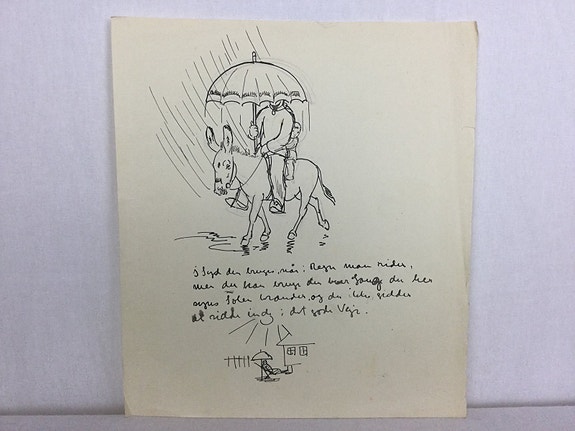 i Syd den bruges, når i Regn man rider,
men du kan bruge den hver Gang du her
synes Solen brænder, og du ikke gidder
at ridde inde i det gode Vejr.